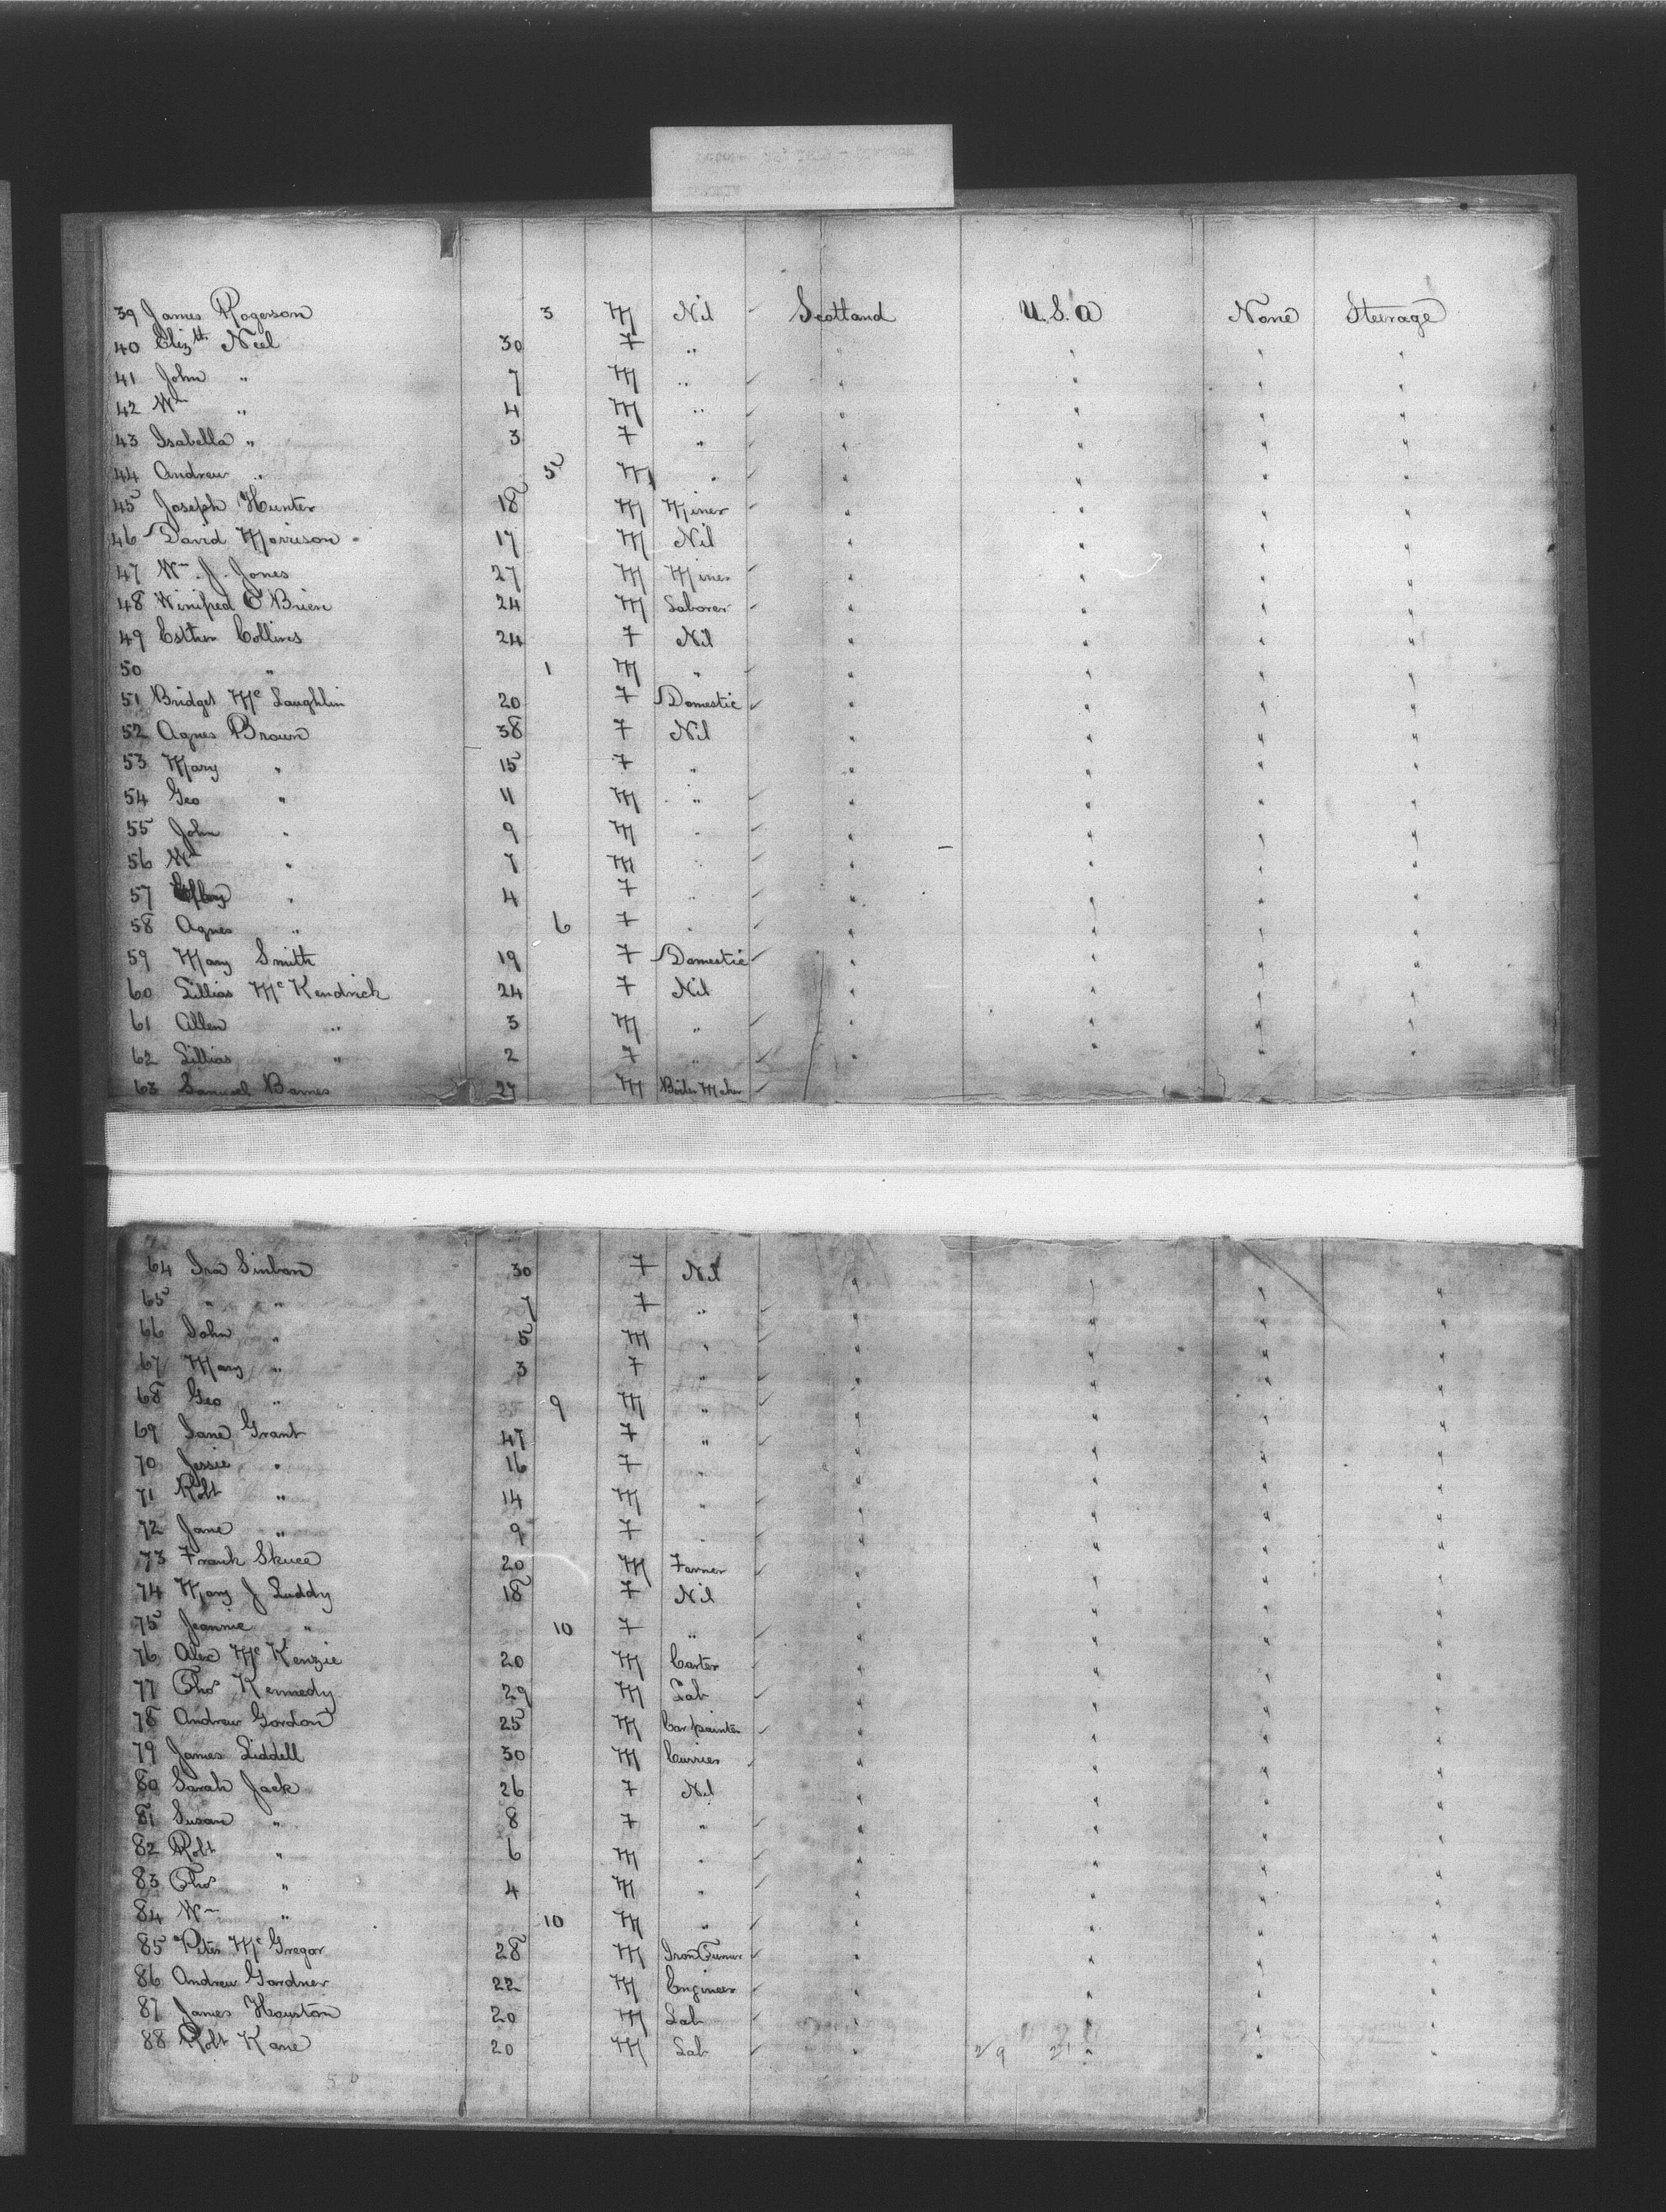 39 James Rogerson 3 M Nil Scotland U.S.A None Steerage
40 Elizth Neil 30 F " " " " "
41 John " 7 M " " " " "
42 Wm " 4 M " " " " "
43 Isabella " 3 F " " " " "
44 Andrew " 5 M " " " " "
45 Joseph Hunter 18 M Miner " " " "
46 David Morrison 17 M Nil " " " "
47 Wm J. Jones 27 M Miner " " " "
48 Winifred O'Brien 24 M Laborer " " " "
49 Esther Collins 24 F Nil " " " "
50 " 1 M " " " " "
51 Bridget Mc Laughlin 20 F Domestic " " " "
52 Agnes Brown 38 F Nil " " " "
53 Mary " 15 F " " " " "
54 Geo " 11 M " " " " "
55 John " 9 M " " " " "
56 Wm " 7 M " " " " "
57 " 4 F " " " " "
58 Agnes " 6 F " " " " "
59 Mary Smith 19 F Domestic " " " "
60 Lillias Mc Kendrick 24 F Nil " " " "
61 Allen " 3 M " " " " "
62 Lillias " 2 F " " " " "
63 Samuel Barnes 27 M Boiler Maker
64 30 F Nil " " " "
65 " " 7 F " " " " "
66 John " 5 M " " " " "
67 Mary " 3 F " " " " "
68 Geo " 9 M " " " " "
69 Jane Grant 47 F " " " " "
70 Jessie " 16 F " " " " "
71 Robt " 14 M " " " " "
72 Jane " 9 F " " " " "
73 Frank Skuce 20 M Farmer " " " "
74 Mary J Luddy 18 F Nil " " " "
75 Jeannie " 10 F " " " " "
76 Alex Mc Kenzie 20 M Carter " " " "
77 Thos Kennedy 29 M Lab " " " "
78 Andrew Gordon 25 M " " " "
79 James Liddell 30 M Currier " " " "
80 Sarah Jack 26 F Nil " " " "
81 Susan " 8 F " " " " "
82 Robt " 6 M " " " " "
83 Thos " 4 M " " " " "
84 Wm " 10 M " " " " "
85 Peter Mc Gregor 28 M Iron Turner " " " "
86 Andrew Gardner 22 M Engineer " " " "
87 James Houston 20 M Lab " " " "
88 Robt Kane 20 M Lab " " " "